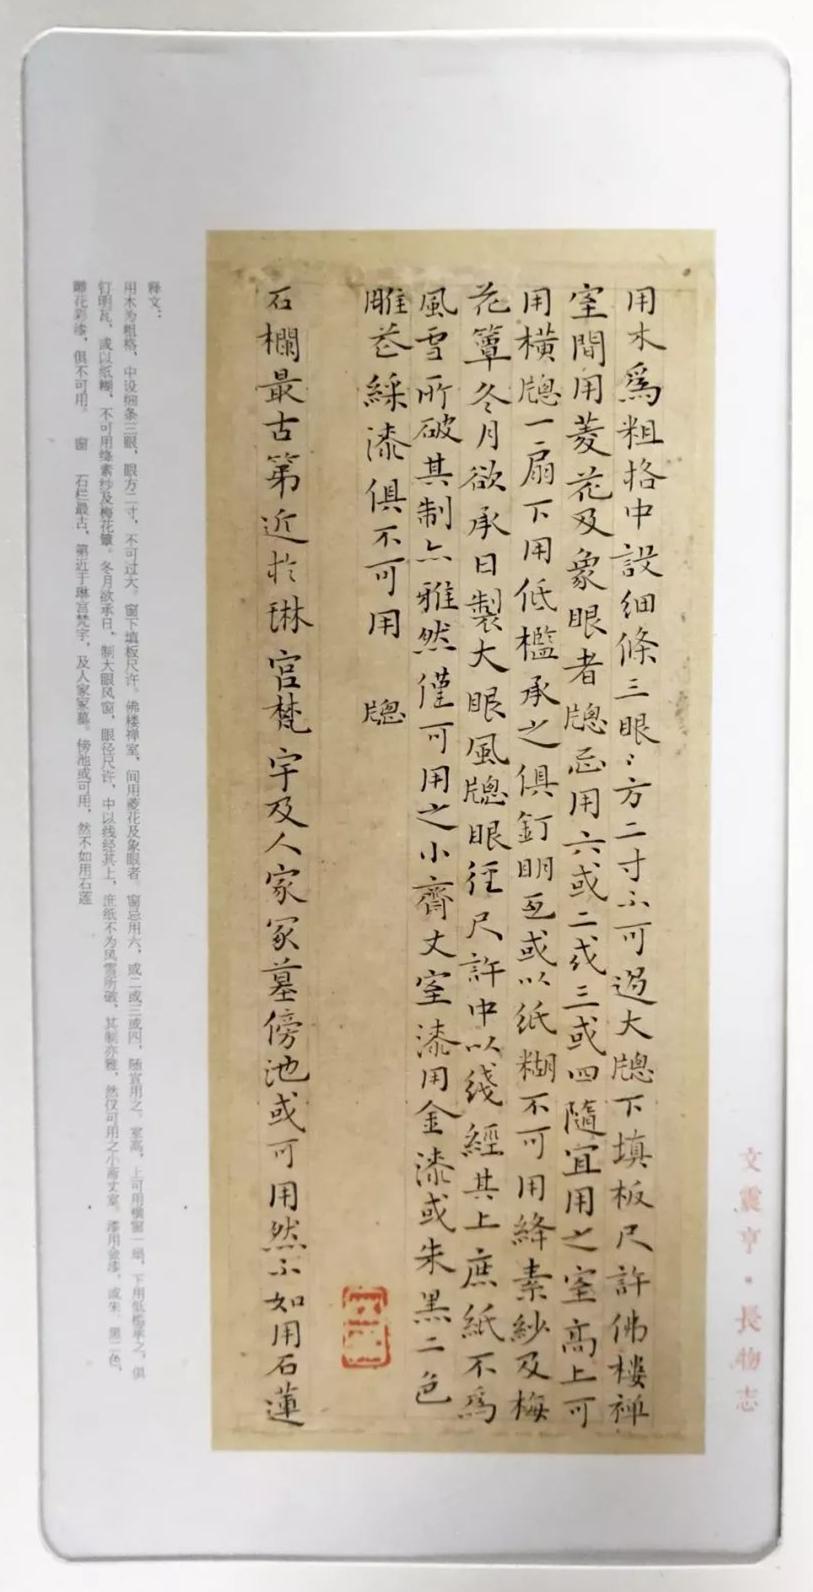 文震亨·長物志
用木爲粗格中設細條三眼〻方二寸不可過大牕下填板尺許佛樓禅
室間用菱花及象眼者牕忌用六或二或三或四隨宜用之室高上可
用橫牕一扇下用低檻承之俱釘明瓦或以紙糊不可用絳素紗及梅
花簟冬月欲承日製大眼風牕眼徑尺許中以綫經其上庶紙不爲
風雪所破其制亦雅然僅可用之小齋丈室漆用金漆或朱黑二色
雕花綵漆俱不可用 牕
石欄最古第近於琳宮梵宇及人家冢墓傍池或可用然不如用石蓮
释文：
用木为粗格，中设细条三眼，眼方二寸，不可过大。窗下填板尺许。佛楼禅室，间用菱花及象眼者。窗忌用六，或二或三或四，随宜用之。室高，上可用横窗一扇，下用低槛承之。俱
钉明瓦，或以纸糊，不可用绛素纱及梅花簟。冬月欲承日，制大眼风窗，眼径尺许，中以线经其上，庶纸不为风雪所破，其制亦雅，然仅可用之小斋丈室。漆用金漆，或朱、黑二色，
雕花彩漆，俱不可用。 窗 石栏最古，第近于琳宫梵宇，及人家冢墓。傍池或可用，然不如用石莲